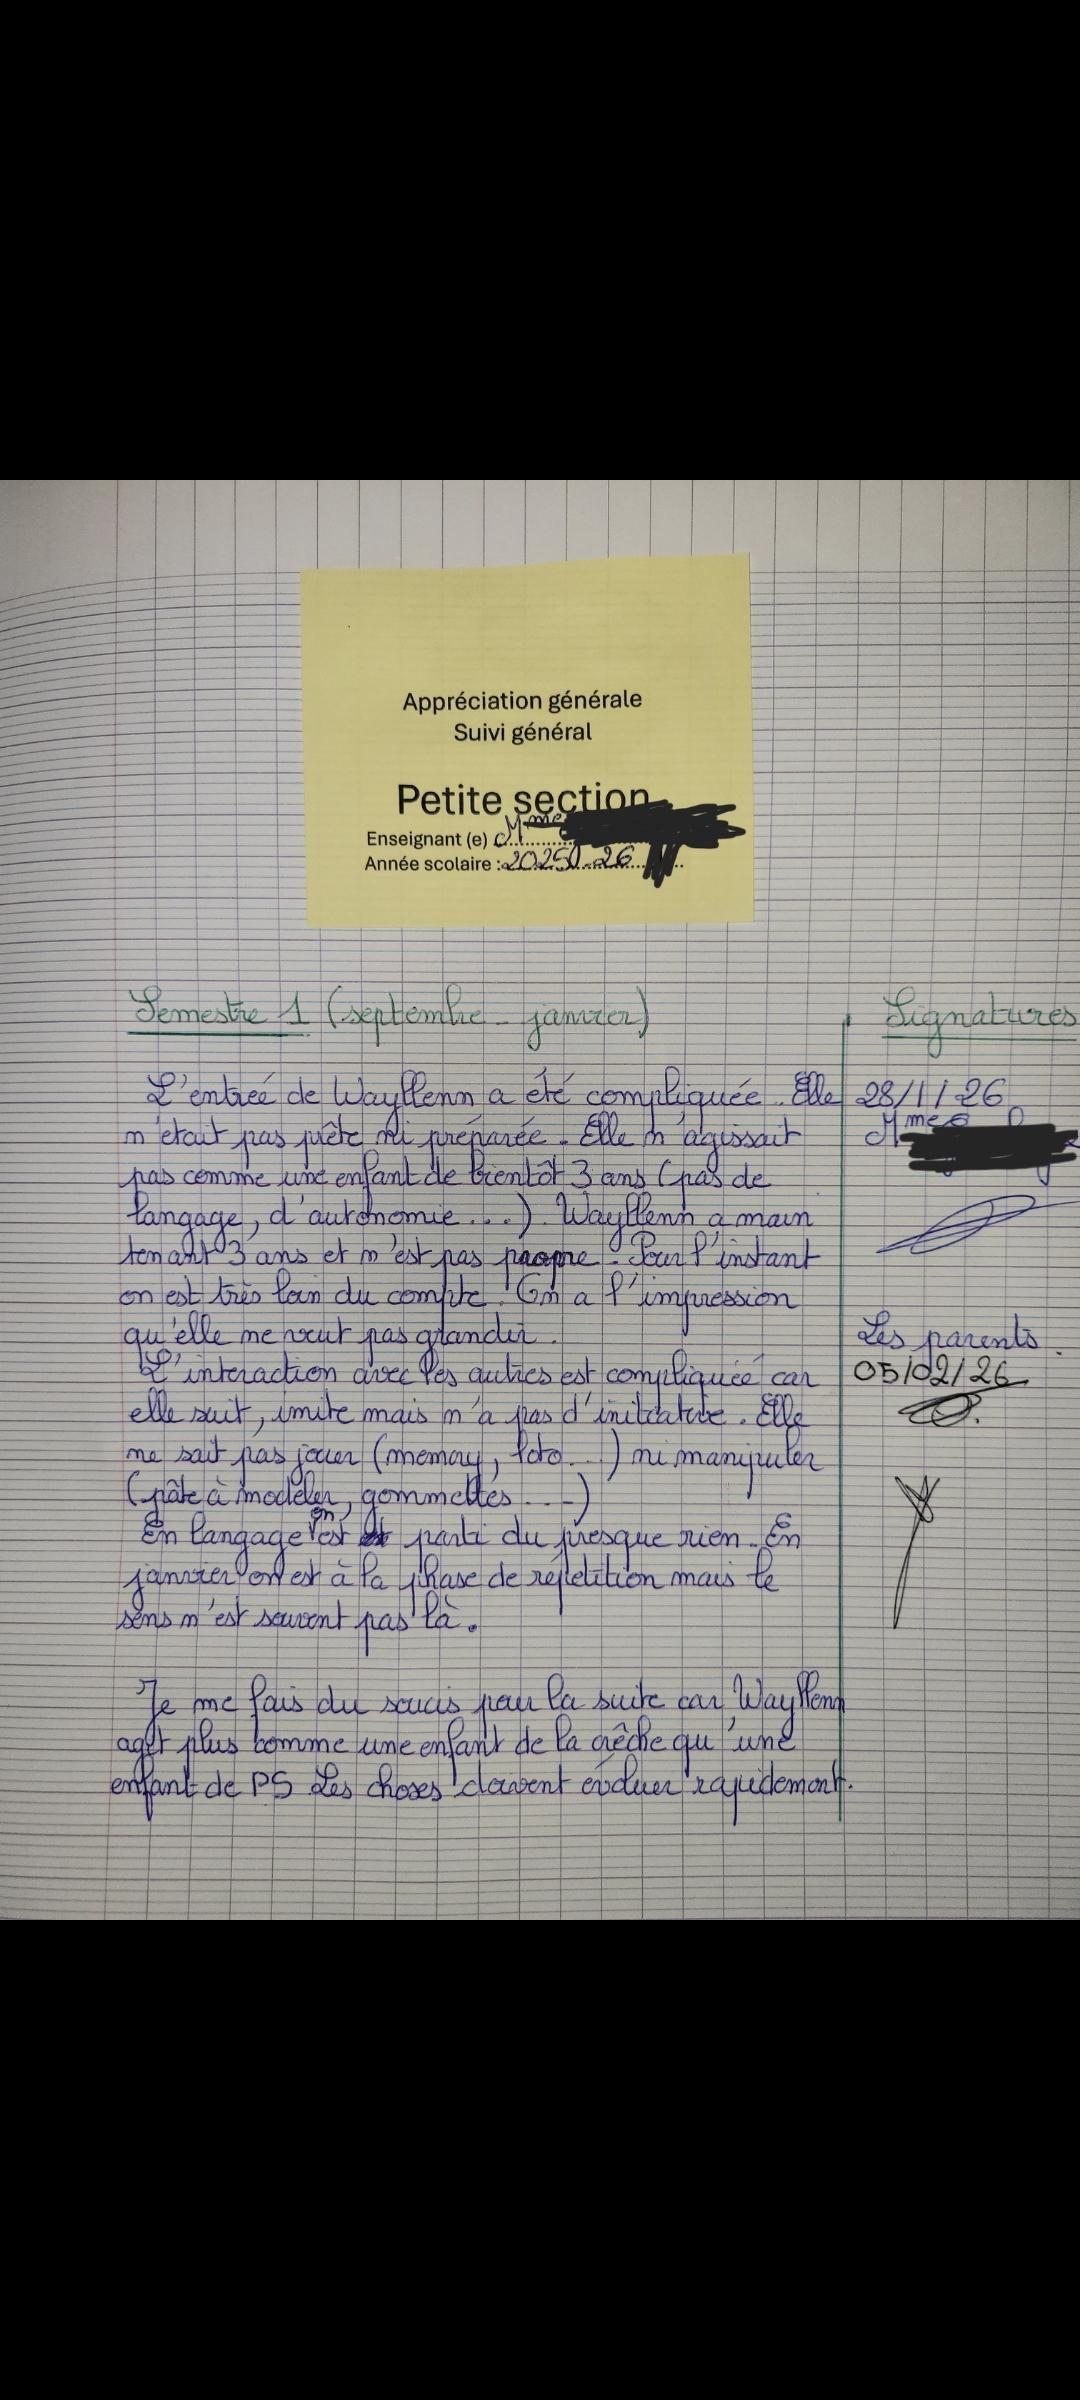 Appréciation générale
Suivi général
Petite section
Enseignant (e) Mme
Année scolaire : 2025-26
Semestre 1 (septembre - janvier)
Signatures
L'entrée de Wayllenn a été compliquée. Elle
n'était pas prête ni préparée. Elle n'agissait
pas comme une enfant de bientôt 3 ans (pas de
langage, d'autonomie...). Wayllenn a main
tenant 3 ans et n'est pas propre. Pour l'instant
on est très loin du compte. On a l'impression
qu'elle ne veut pas grandir.
L'interaction avec les autres est compliquée car
elle suit, imite mais n'a pas d'initiative. Elle
ne sait pas jouer (memory, loto...) ni manipuler
(pâte à modeler, gommettes...)
En langage on est parti du presque rien. En
janvier on est à la phase de répétition mais le
sens n'est souvent pas là.
Je me fais du soucis pour la suite car Wayllenn
agit plus comme une enfant de la crêche qu'une
enfant de PS Les choses doivent évoluer rapidement.
28/1/26
Mme
Les parents.
05/02/26